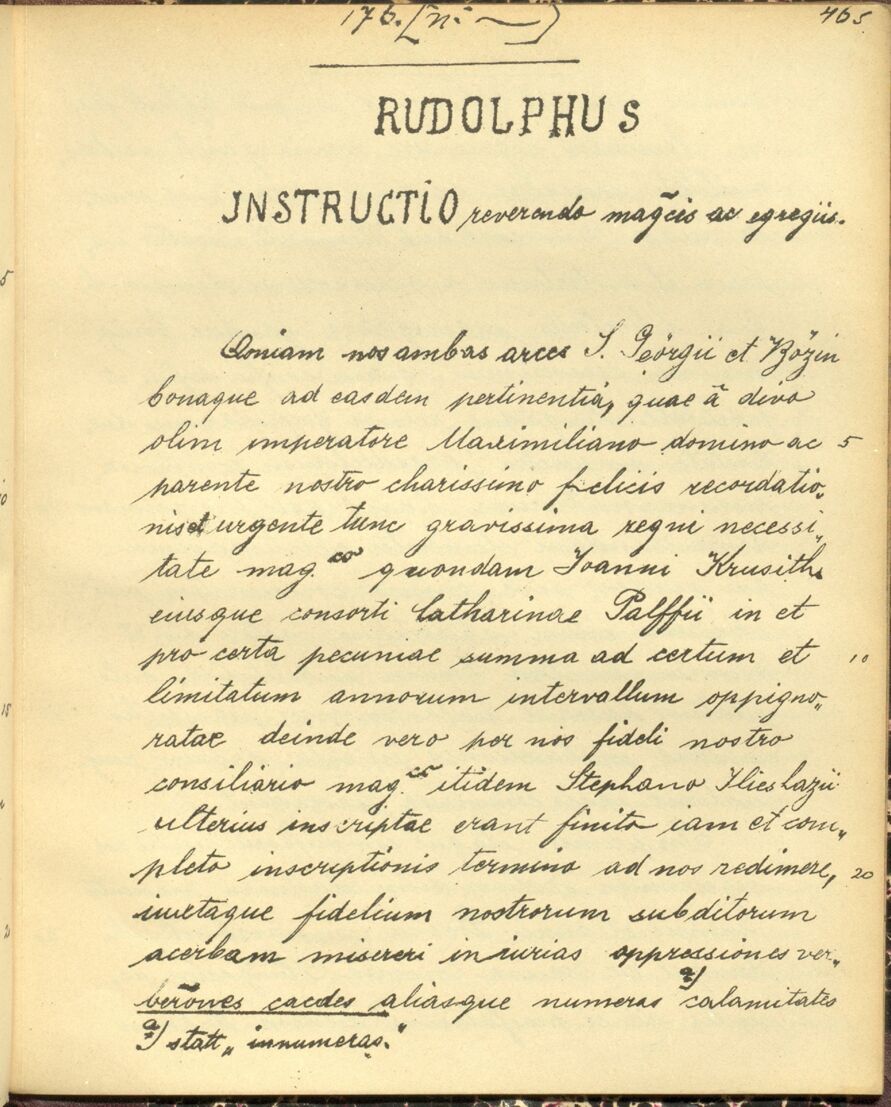 176. [n: —]
465
RUDOLPHUS
INSTRUCTIO reverendo mag̃cis ac egregiis.
Qoniam nos ambas arces S. Georgii et Bözin
bonaque ad easdem pertinentia, quae ã divo
olim imperatore Maximiliano domino ac 5
parente nostro charissimo felicis recordatio„
nis et urgente tunc gravissima regni necessi„
tate mag.co quondam Joanni Krusith
eiusque consorti Catharinae Palffii in et
pro certa pecuniae summa ad certum et 10
limitatum annorum intervallum oppigno„
ratae deinde vero per nos fideli nostro
consiliario mag.co itidem Stephano Ilieshazii
ulterius inscriptae erant finito iam et com„
pleto inscriptionis termino ad nos redimere, 20
iuxtaque fidelium nostrorum subditorum
acerbam misereri iniurias oppressiones ver„
berõnes caedes aliasque numeras a) calamitates
a) statt „innumeras."